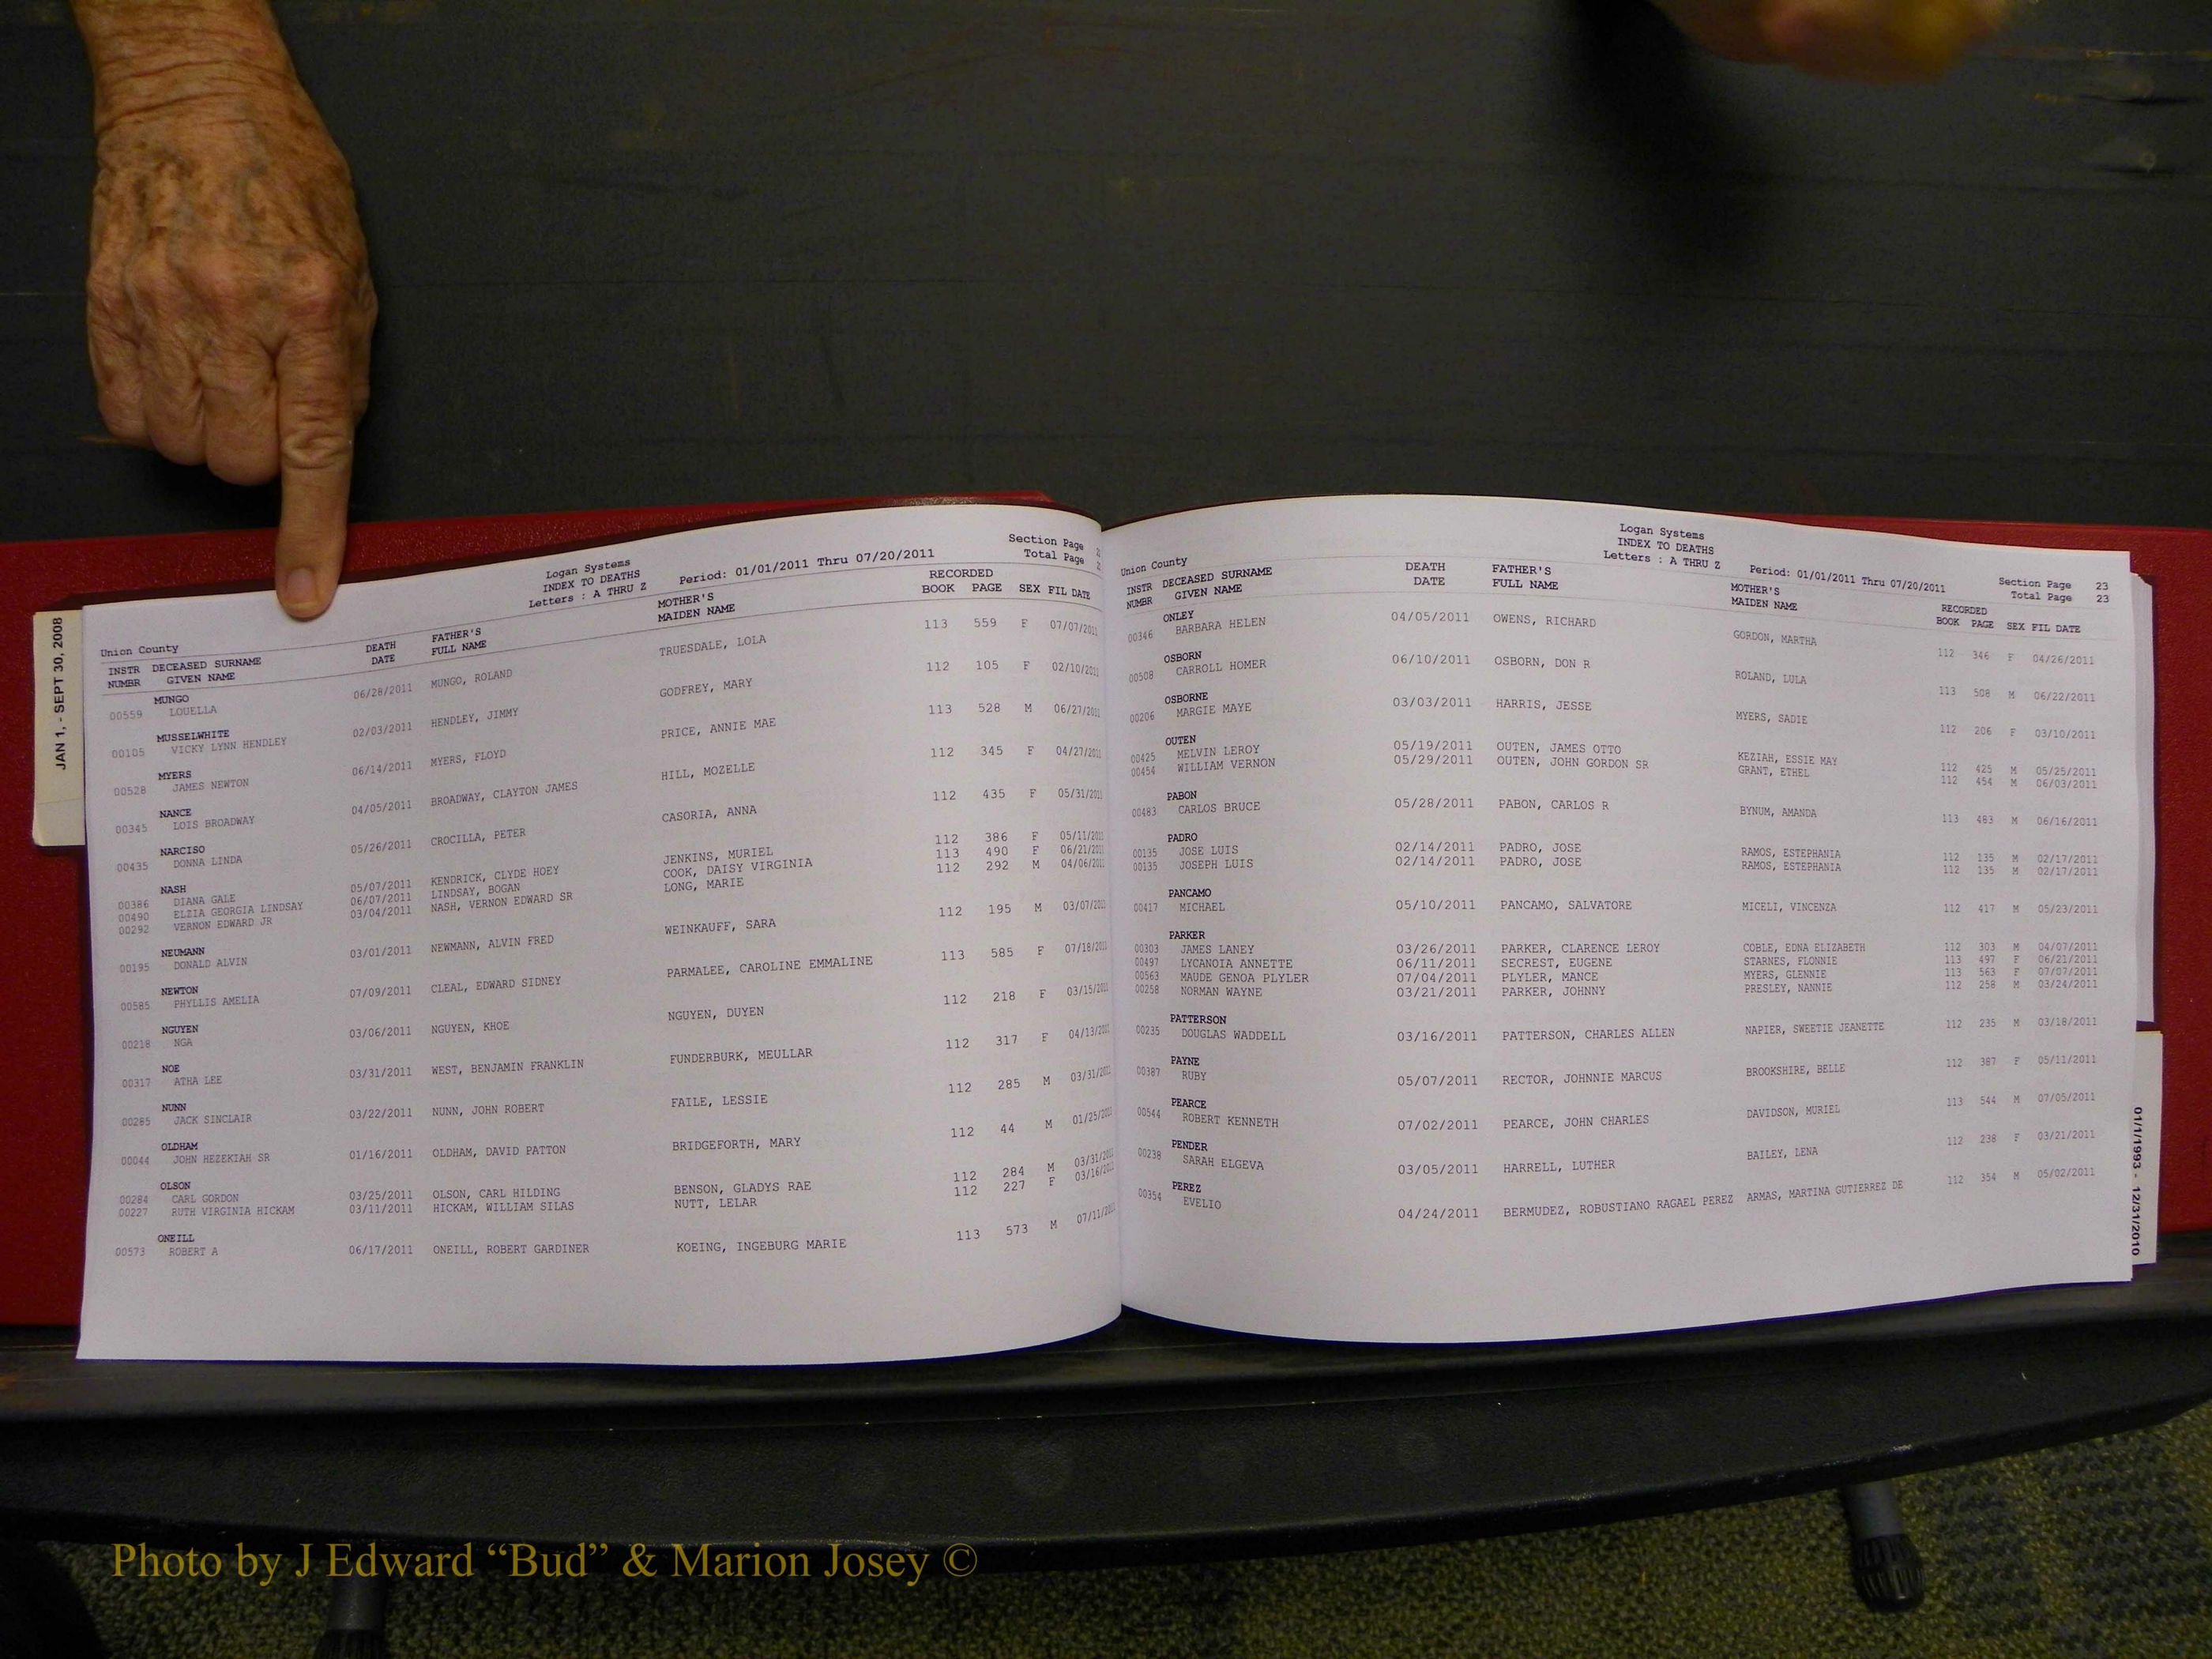 JAN 1, - SEPT 30, 2008
Logan Systems
INDEX TO DEATHS
Letters : A THRU Z
Period: 01/01/2011 Thru 07/20/2011
Section Page
Total Page
Union County
INSTR DECEASED SURNAME DEATH FATHER'S MOTHER'S RECORDED
NUMBR GIVEN NAME DATE FULL NAME MAIDEN NAME BOOK PAGE SEX FIL DATE
MUNGO
00559 LOUELLA 06/28/2011 MUNGO, ROLAND TRUESDALE, LOLA 113 559 F 07/07/2011
MUSSELWHITE
00105 VICKY LYNN HENDLEY 02/03/2011 HENDLEY, JIMMY GODFREY, MARY 112 105 F 02/10/2011
MYERS
00528 JAMES NEWTON 06/14/2011 MYERS, FLOYD PRICE, ANNIE MAE 113 528 M 06/27/2011
NANCE
00345 LOIS BROADWAY 04/05/2011 BROADWAY, CLAYTON JAMES HILL, MOZELLE 112 345 F 04/27/2011
NARCISO
00435 DONNA LINDA 05/26/2011 CROCILLA, PETER CASORIA, ANNA 112 435 F 05/31/2011
NASH
00386 DIANA GALE 05/07/2011 KENDRICK, CLYDE HOEY JENKINS, MURIEL 112 386 F 05/11/2011
00490 ELZIA GEORGIA LINDSAY 06/07/2011 LINDSAY, BOGAN COOK, DAISY VIRGINIA 113 490 F 06/21/2011
00292 VERNON EDWARD JR 03/04/2011 NASH, VERNON EDWARD SR LONG, MARIE 112 292 M 04/06/2011
NEUMANN
00195 DONALD ALVIN 03/01/2011 NEWMANN, ALVIN FRED WEINKAUFF, SARA 112 195 M 03/07/2011
NEWTON
00585 PHYLLIS AMELIA 07/09/2011 CLEAL, EDWARD SIDNEY PARMALEE, CAROLINE EMMALINE 113 585 F 07/18/2011
NGUYEN
00218 NGA 03/06/2011 NGUYEN, KHOE NGUYEN, DUYEN 112 218 F 03/15/2011
NOE
00317 ATHA LEE 03/31/2011 WEST, BENJAMIN FRANKLIN FUNDERBURK, MEULLAR 112 317 F 04/13/2011
NUNN
00285 JACK SINCLAIR 03/22/2011 NUNN, JOHN ROBERT FAILE, LESSIE 112 285 M 03/31/2011
OLDHAM
00044 JOHN HEZEKIAH SR 01/16/2011 OLDHAM, DAVID PATTON BRIDGEFORTH, MARY 112 44 M 01/25/2011
OLSON
00284 CARL GORDON 03/25/2011 OLSON, CARL HILDING BENSON, GLADYS RAE 112 284 M 03/31/2011
00227 RUTH VIRGINIA HICKAM 03/11/2011 HICKAM, WILLIAM SILAS NUTT, LELAR 112 227 F 03/16/2011
ONEILL
00573 ROBERT A 06/17/2011 ONEILL, ROBERT GARDINER KOEING, INGEBURG MARIE 113 573 M 07/11/2011
Logan Systems
INDEX TO DEATHS
Letters : A THRU Z
Period: 01/01/2011 Thru 07/20/2011
Section Page 23
Total Page 23
Union County
INSTR DECEASED SURNAME DEATH FATHER'S MOTHER'S RECORDED
NUMBR GIVEN NAME DATE FULL NAME MAIDEN NAME BOOK PAGE SEX FIL DATE
ONLEY
00346 BARBARA HELEN 04/05/2011 OWENS, RICHARD GORDON, MARTHA 112 346 F 04/26/2011
OSBORN
00508 CARROLL HOMER 06/10/2011 OSBORN, DON R ROLAND, LULA 113 508 M 06/22/2011
OSBORNE
00206 MARGIE MAYE 03/03/2011 HARRIS, JESSE MYERS, SADIE 112 206 F 03/10/2011
OUTEN
00425 MELVIN LEROY 05/19/2011 OUTEN, JAMES OTTO KEZIAH, ESSIE MAY 112 425 M 05/25/2011
00454 WILLIAM VERNON 05/29/2011 OUTEN, JOHN GORDON SR GRANT, ETHEL 112 454 M 06/03/2011
PABON
00483 CARLOS BRUCE 05/28/2011 PABON, CARLOS R BYNUM, AMANDA 113 483 M 06/16/2011
PADRO
00135 JOSE LUIS 02/14/2011 PADRO, JOSE RAMOS, ESTEPHANIA 112 135 M 02/17/2011
00135 JOSEPH LUIS 02/14/2011 PADRO, JOSE RAMOS, ESTEPHANIA 112 135 M 02/17/2011
PANCAMO
00417 MICHAEL 05/10/2011 PANCAMO, SALVATORE MICELI, VINCENZA 112 417 M 05/23/2011
PARKER
00303 JAMES LANEY 03/26/2011 PARKER, CLARENCE LEROY COBLE, EDNA ELIZABETH 112 303 M 04/07/2011
00497 LYCANOIA ANNETTE 06/11/2011 SECREST, EUGENE STARNES, FLONNIE 113 497 F 06/21/2011
00563 MAUDE GENOA PLYLER 07/04/2011 PLYLER, MANCE MYERS, GLENNIE 113 563 F 07/07/2011
00258 NORMAN WAYNE 03/21/2011 PARKER, JOHNNY PRESLEY, NANNIE 112 258 M 03/24/2011
PATTERSON
00235 DOUGLAS WADDELL 03/16/2011 PATTERSON, CHARLES ALLEN NAPIER, SWEETIE JEANETTE 112 235 M 03/18/2011
PAYNE
00387 RUBY 05/07/2011 RECTOR, JOHNNIE MARCUS BROOKSHIRE, BELLE 112 387 F 05/11/2011
PEARCE
00544 ROBERT KENNETH 07/02/2011 PEARCE, JOHN CHARLES DAVIDSON, MURIEL 113 544 M 07/05/2011
PENDER
00238 SARAH ELGEVA 03/05/2011 HARRELL, LUTHER BAILEY, LENA 112 238 F 03/21/2011
PEREZ
00354 EVELIO 04/24/2011 BERMUDEZ, ROBUSTIANO RAGAEL PEREZ ARMAS, MARTINA GUTIERREZ DE 112 354 M 05/02/2011
01/1/1993 - 12/31/2010
Photo by J Edward “Bud” & Marion Josey ©